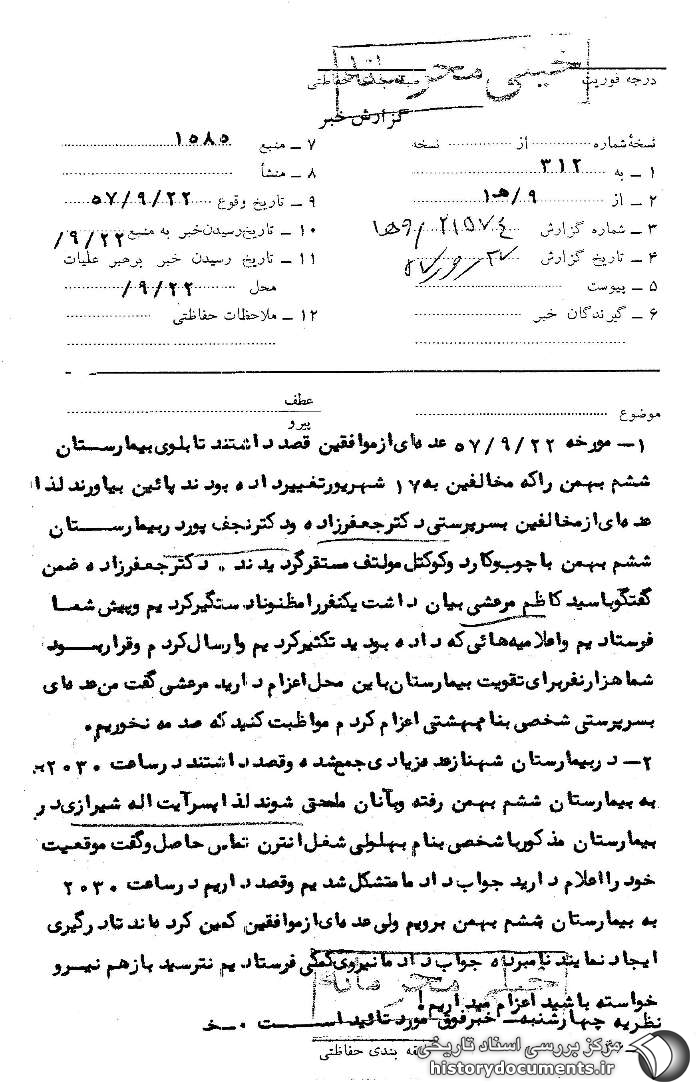 خیلی محرمانه
درجه فوریت
طبقه‌بندی حفاظتی
گزارش خبر
نسخهٔ شماره از نسخه
۱ – به ۳۱۲
۲ – از ۹/ه‍۱
۳ – شماره گزارش
۴ – تاریخ گزارش
۵ – پیوست
۶ – گیرندگان خبر
۷ – منبع ۱۵۸۵
۸ – منشأ
۹ – تاریخ وقوع ۵۷/۹/۲۲
۱۰ – تاریخ رسیدن خبر به منبع ۹/۲۲/
۱۱ – تاریخ رسیدن خبر برهبر عملیات
محل ۹/۲۲/
۱۲ – ملاحظات حفاظتی
موضوع
عطف
پیرو
۱– مورخه ۵۷/۹/۲۲ عده‌ای از موافقین قصد داشتند تابلوی بیمارستان
ششم بهمن را که مخالفین به ۱۷ شهریور تغییر داده بودند پائین بیاورند لذا
عده‌ای از مخالفین بسرپرستی دکتر جعفرزاده و دکتر نجف پور در بیمارستان
ششم بهمن با چوب و کارد و کوکتل مولتف مستقر گردیدند. دکتر جعفرزاده ضمن
گفتگو با سید کاظم مرعشی بیان داشت یکنفر را مظنونا دستگیر کردیم و پیش شما
فرستادیم و اعلامیه‌هائی که داده بودید تکثیر کردیم و ارسال کردم و قرار بود
شما هزار نفر برای تقویت بیمارستان باین محل اعزام دارید مرعشی گفت من عده‌ای
بسرپرستی شخصی بنام بهشتی اعزام کردم مواظبت کنید که صدمه نخوریم.
۲– در بیمارستان شهناز عده زیادی جمع شده و قصد داشتند در ساعت ۲۰۳۰
به بیمارستان ششم بهمن رفته و بآنان ملحق شوند لذا پسر آیت اله شیرازی در
بیمارستان مذکور با شخصی بنام بهلولی شغل انترن تماس حاصل و گفت موقعیت
خود را اعلام دارید جواب داد ما متشکل شدیم و قصد داریم در ساعت ۲۰۳۰
به بیمارستان ششم بهمن برویم ولی عده‌ای از موافقین کمین کرده‌اند تا درگیری
ایجاد نمایند نامبرده جواب داد ما نیروی کمکی فرستادیم نترسید باز هم نیرو
خواسته باشید اعزام میداریم!
نظریه چهارشنبه– خبر فوق مورد تائید است ۰–خ
خیلی محرمانه
طبقه بندی حفاظتی
مرکز بررسی اسناد تاریخی
historydocuments.ir